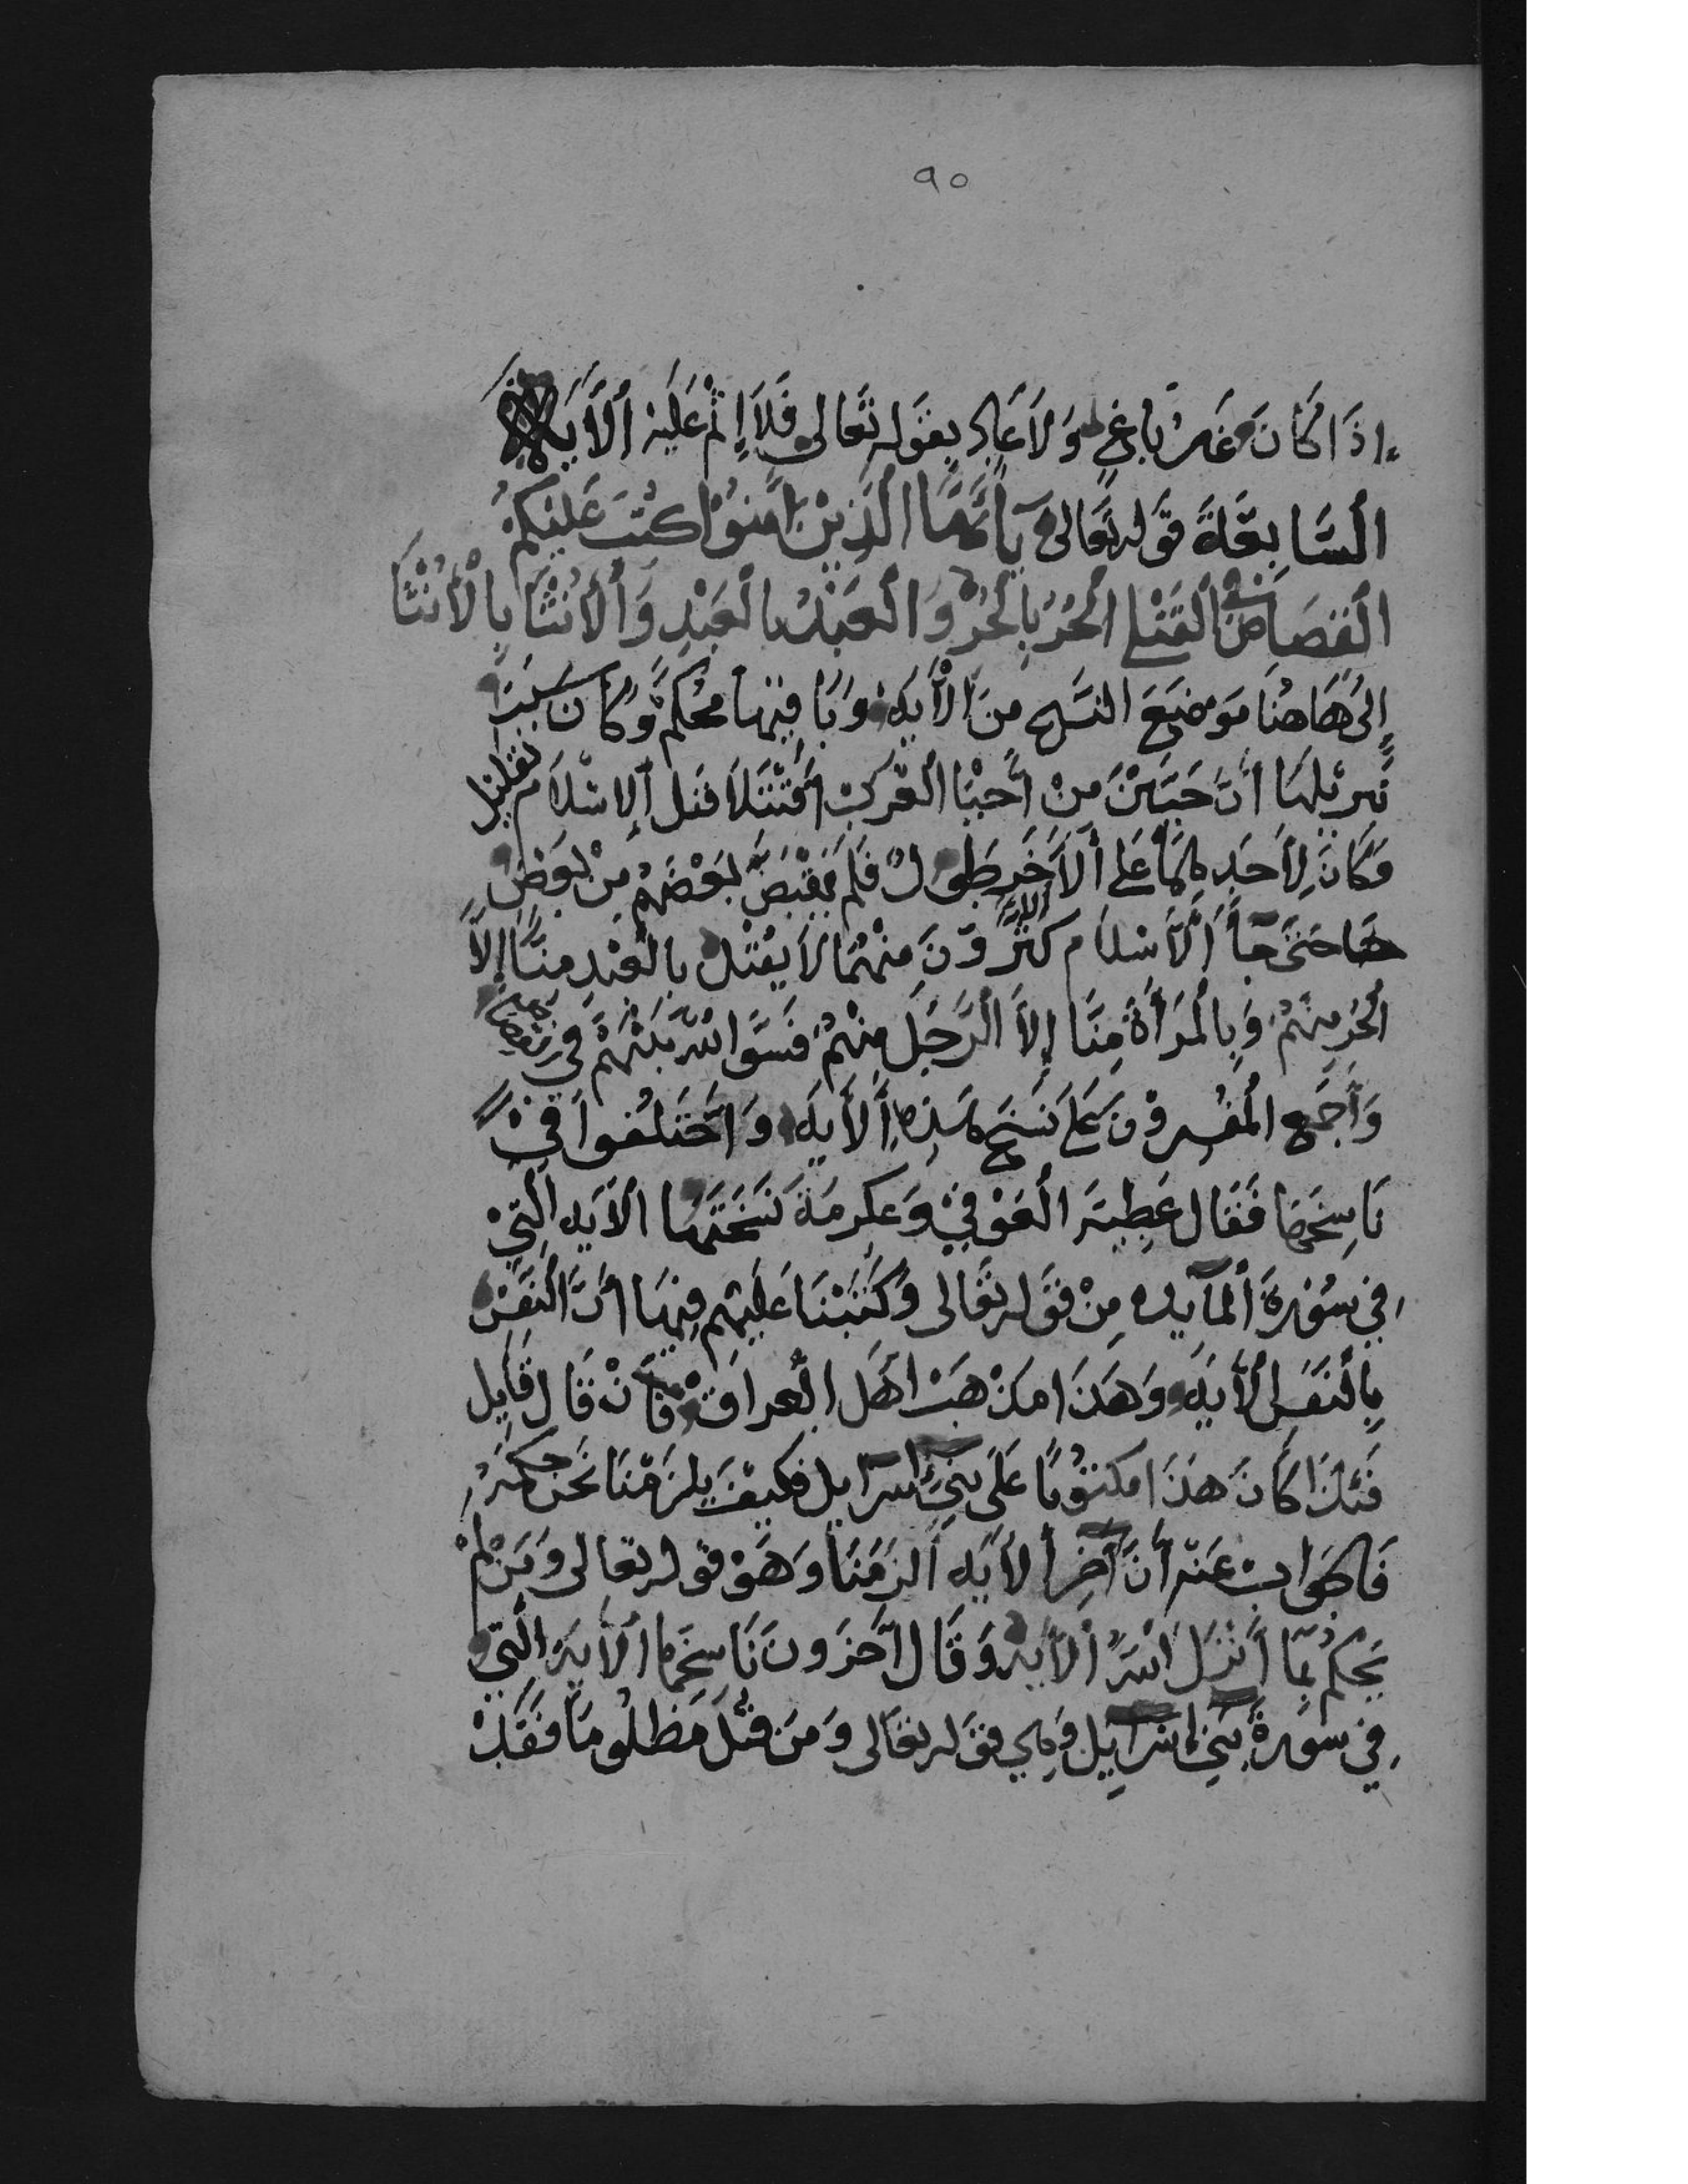 ٩٥
إذَا كَانَ غَيْرُ بَاغٍ وَلاَ عَادٍ بقَوله تعَالى فَلاَ إِثْمَ عَلَيْه ألأَيَه
ألسَّابِعَةَ قَوله تعَالى يَآأَيُّهَا الَّذِيْنَ امَنُوْا كُتِبَ عَلَيْكُمُ
القِصَاصُ فِي القَتْلى الحُرُ بِالحُرّ وَالعَبْدُ بالعَبْدِ وَالأُنْثَا بِالأُنْثَا
إلَى هَاهُنَا مَوضِعَ النسَخ مِنَ الأَيَه وَبَاقِيهَا مُحْكَم وَكَانَ سَبَبَ
نَزِيْلهَا أنَّ حَيَّيْنَ مِنْ أَحْيَا العَرَب أقْتَتَلاَ قبَل الإسْلاَم بقَليل
وَكَانَ لِأَحَدِهِمَا عَلى ألأَخَر طَول فَلَم يَقْتَصَّ بَعْضَهُمْ مِنْ بَعْضٍ
حَتى جَآ الأَسْلاَم كثرَ وّنَ مِنْهُمَا لاَ يقْتُل بالعَبْدِ مِنَّا إلاَّ
الحُر مِنْهُمْ وَبِالمَرَأَة مِنَّا إلاَّ الرَّجُلَ مِنْهُمُ فَسَوَّا الله بَيْنَهُمْ فى القصاص
وَأَجْمَع المُفَسِرُوْنَ عَلى نَسَخ هَذِهِ ألأَيَه وَاخْتَلَفُوا فِيْ
نَاسِخهَا فَقَال عَطِيَة العَوْفِيْ وَعكرمَةَ نَسَخَتهَا الأَيَه الّتِيْ
فِي سُوْرة المآيده مِنْ قَوله تعَالى وَكَتَبْنَا عَلَيْهِم فِيْهَا أنَّ النَفَس
بِالنَفَسِ الأَيَه وَهَذَا مَذْهَبَ أهَل العراق فَأنْ قَال قَايل
فَئذَا كَانَ هَذَا مكتوبًا عَلى بَنِيْ إسْرآيل فكيفَ يلزَمْنَا نَحن حكمهُ
فَالجَوابُ عَنْه أنَّ آخِر ألأَيَه ألزَمَنَا وَهوْ قوله تعالى وَمَنْ لَمْ
يَحْكُم بِمَا أَنْزَلَ اللهُ ألأَيه وَقَال آخَرونَ نَاسِخهَا الأَيَة الَّتِي
فِي سوَرة بَنِي إسْرَآيِل وَهِي قوَله تعَالى وَمَن قُتِلَ مَظلُومًا فقَدْ